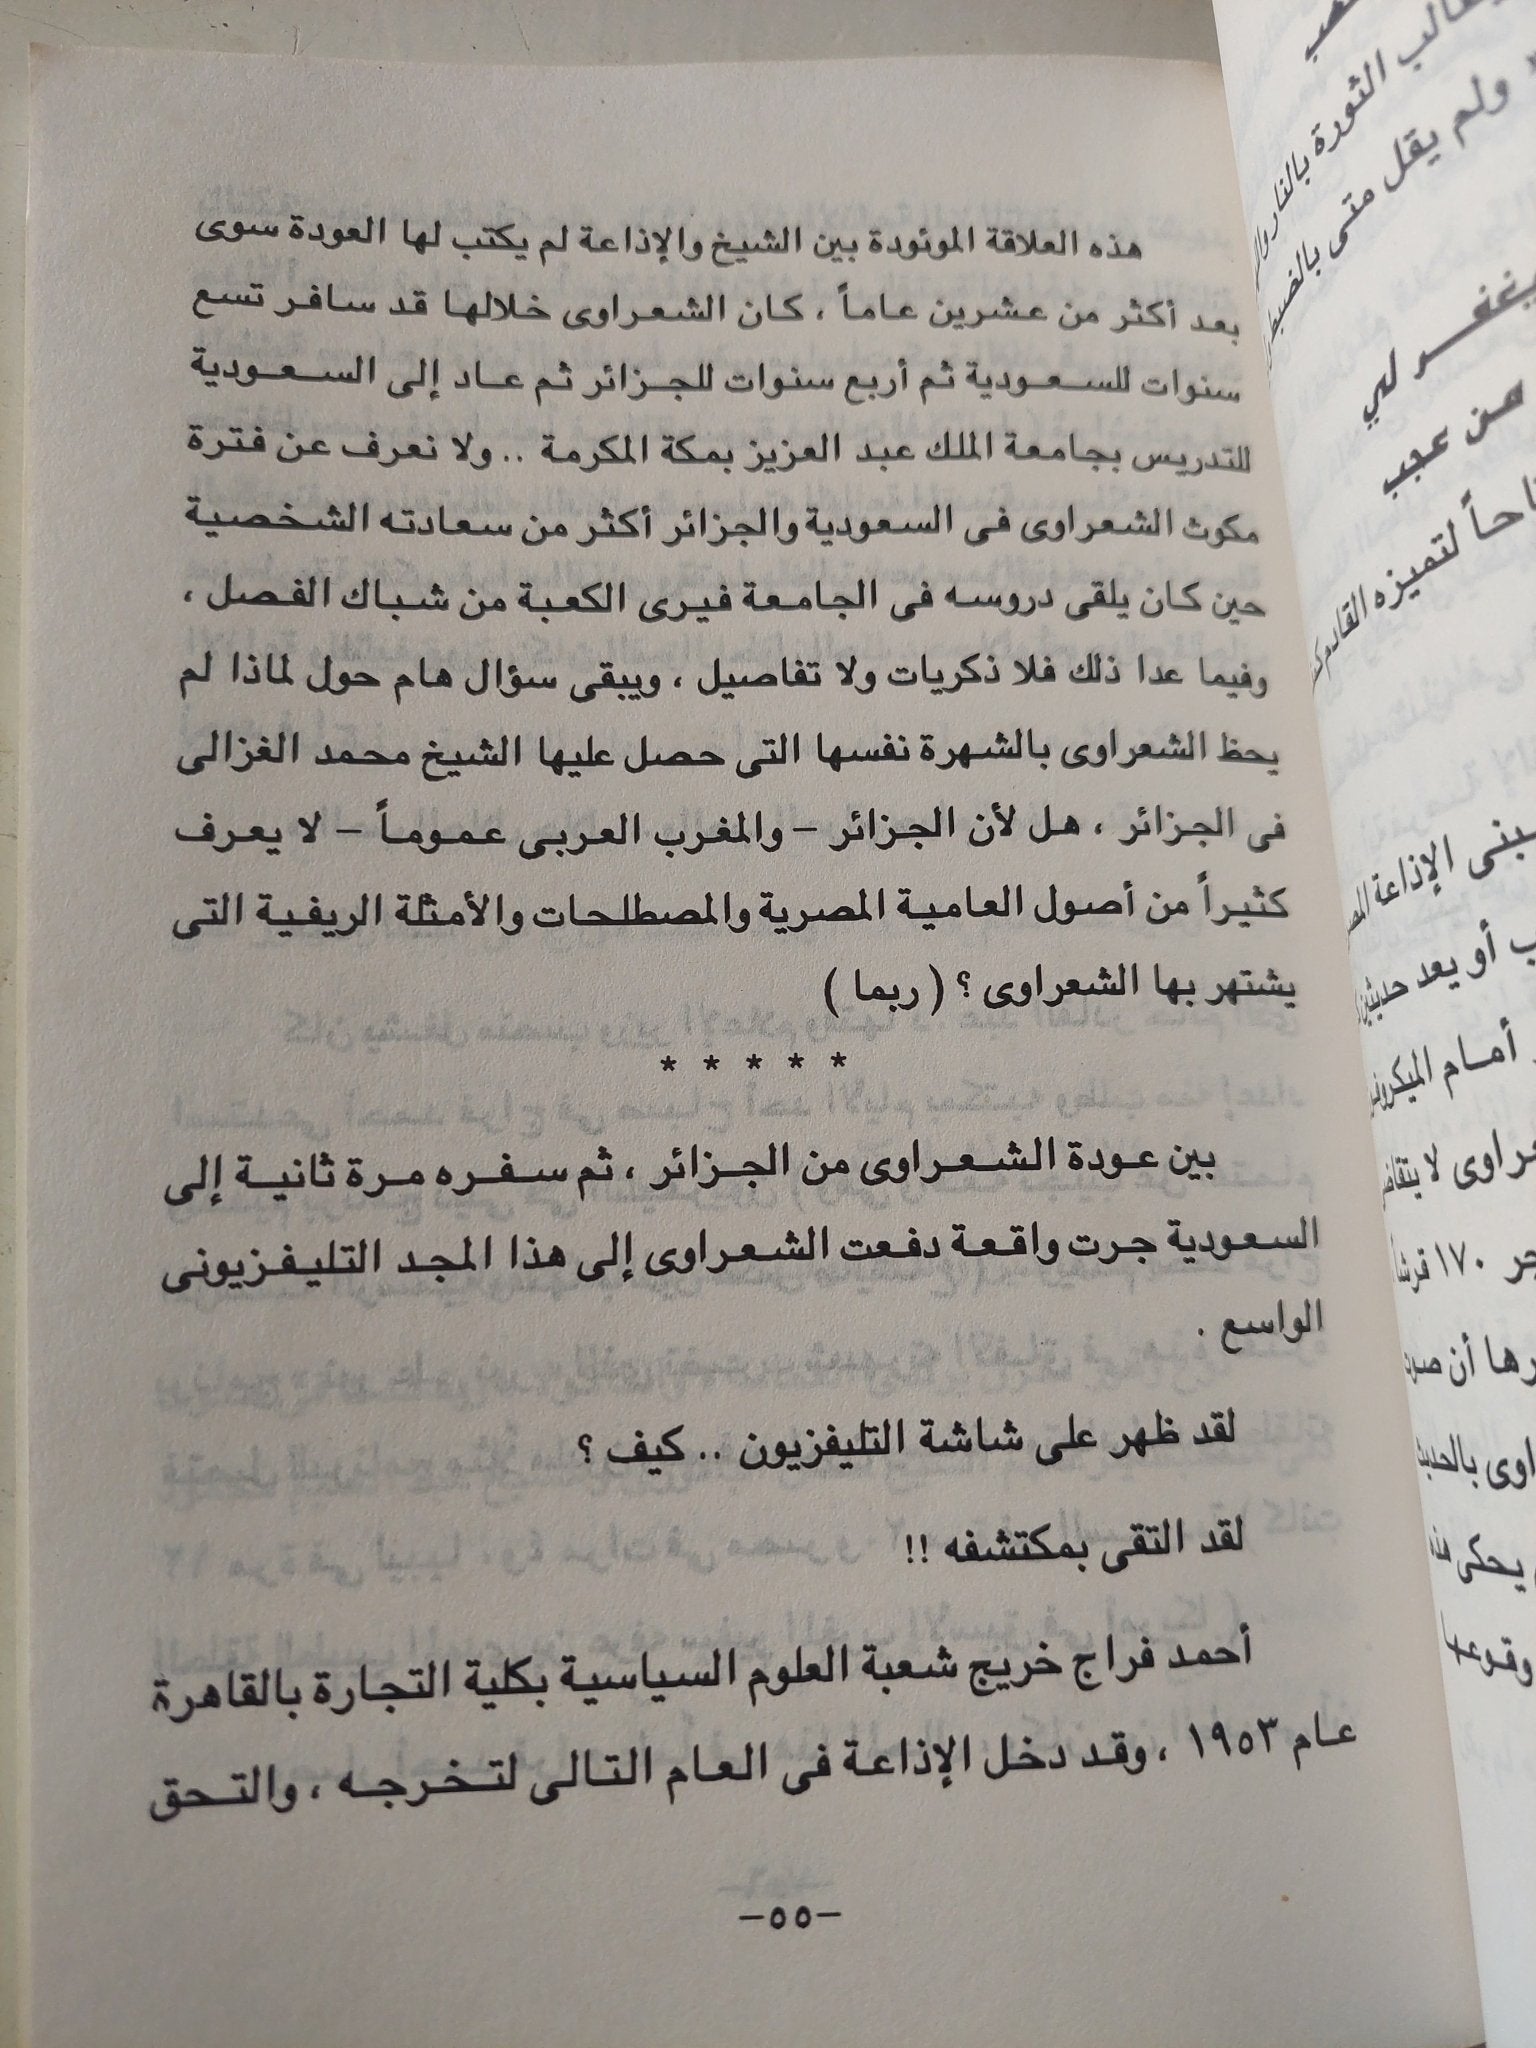 هذه العلاقة الموئودة بين الشيخ والإذاعة لم يكتب لها العودة سوى
بعد أكثر من عشرين عاماً ، كان الشعراوى خلالها قد سافر تسع
سنوات للسعودية ثم أربع سنوات للجزائر ثم عاد إلى السعودية
للتدريس بجامعة الملك عبد العزيز بمكة المكرمة .. ولا نعرف عن فترة
مكوث الشعراوى فى السعودية والجزائر أكثر من سعادته الشخصية
حين كان يلقى دروسه فى الجامعة فيرى الكعبة من شباك الفصل ،
وفيما عدا ذلك فلا ذكريات ولا تفاصيل ، ويبقى سؤال هام حول لماذا لم
يحظ الشعراوى بالشهرة نفسها التى حصل عليها الشيخ محمد الغزالى
فى الجزائر ، هل لأن الجزائر – والمغرب العربى عموماً – لا يعرف
كثيراً من أصول العامية المصرية والمصطلحات والأمثلة الريفية التى
يشتهر بها الشعراوى ؟ ( ربما )
* * * * *
بين عودة الشعراوى من الجزائر ، ثم سفره مرة ثانية إلى
السعودية جرت واقعة دفعت الشعراوى إلى هذا المجد التليفزيونى
الواسع .
لقد ظهر على شاشة التليفزيون .. كيف ؟
لقد التقى بمكتشفه !!
أحمد فراج خريج شعبة العلوم السياسية بكلية التجارة بالقاهرة
عام ١٩٥٣ ، وقد دخل الإذاعة فى العام التالى لتخرجه ، والتحق
–٥٥–
الثورة بالنار
ولم يقل متى بالضبط
لي
من عجب
لتميزه القادم
الإذاعة
أو يعد
أمام
لا
١٧٠ قرشاً
أن
بالحديث
يحكى
وقوعها